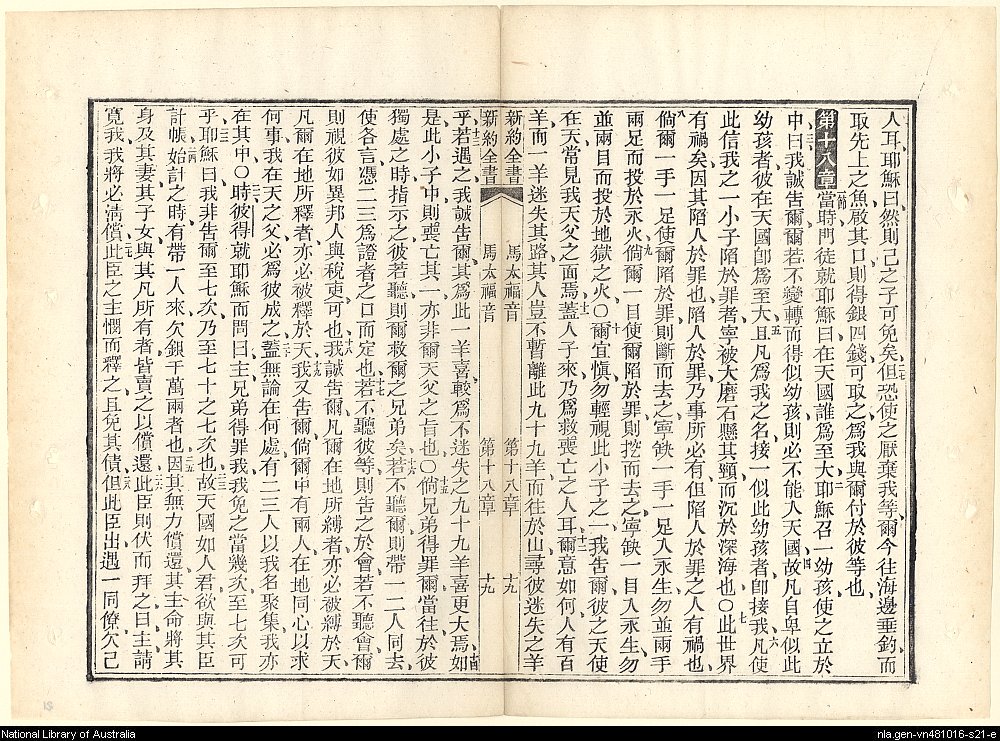 人耳耶穌曰然則己之子可免矣但恐使之厭棄我等爾今往海邊垂釣而
取先上之魚啟其口則得銀四錢可取之爲我與爾付於彼等也
第十八章當時門徒就耶穌曰在天國誰爲至大耶穌召一幼孩使之立於
中曰我誠吿爾爾若不變轉而得似幼孩則必不能入天國故凡自卑似此
幼孩者彼在天國卽爲至大且凡爲我之名接一似此幼孩者卽接我凡使
此信我之一小子陷於罪者寧被大磨石懸其頸而沉於深海也○此世界
有禍矣因其陷人於罪也陷人於罪乃事所必有但陷人於罪之人有禍也
倘爾一手一足使爾陷於罪則斷而去之寧缺一手一足入永生勿並兩手
兩足而投於永火倘爾一目使爾陷於罪則挖而去之寧缺一目入永生勿
並兩目而投於地獄之火○爾宜慎勿輕視此小子之一我吿爾彼之天使
在天常見我天父之面焉蓋人子來乃爲救喪亡之人耳爾意如何人有百
羊而一羊迷失其路其人豈不暫離此九十九羊而往於山尋彼迷失之羊
新約全書 馬太福音 第十八章 十九
新約全書 馬太福音 第十八章 十九
乎若遇之我誠吿爾其爲此一羊喜較爲不迷失之九十九羊喜更大焉如
是此小子中則喪亡其一亦非爾天父之旨也○倘兄弟得罪爾當往於彼
獨處之時指示之彼若聽則爾救爾之兄弟矣若不聽爾則帶一二人同去
使各言憑二三爲證者之口而定也若不聽彼等則吿之於會若不聽會爾
則視彼如異邦人與稅吏可也我誠吿爾凡爾在地所縛者亦必被縛於天
凡爾在地所釋者亦必被釋於天我又吿爾倘爾中有兩人在地同心以求
何事我在天之父必爲彼成之蓋無論在何處有二三人以我名聚集我亦
在其中○時彼得就耶穌而問曰主兄弟得罪我我免之當幾次至七次可
乎耶穌曰我非吿爾至七次乃至七十之七次也故天國如人君欲與其臣
計帳始計之時有帶一人來欠銀千萬兩者也因其無力償還其主命將其
身及其妻其子女與其凡所有者皆賣之以償還此臣則伏而拜之曰主請
寬我我將必清償此臣之主憫而釋之且免其債但此臣出遇一同僚欠己
National Library of Australia
nla.gen-vn481016-s21-e